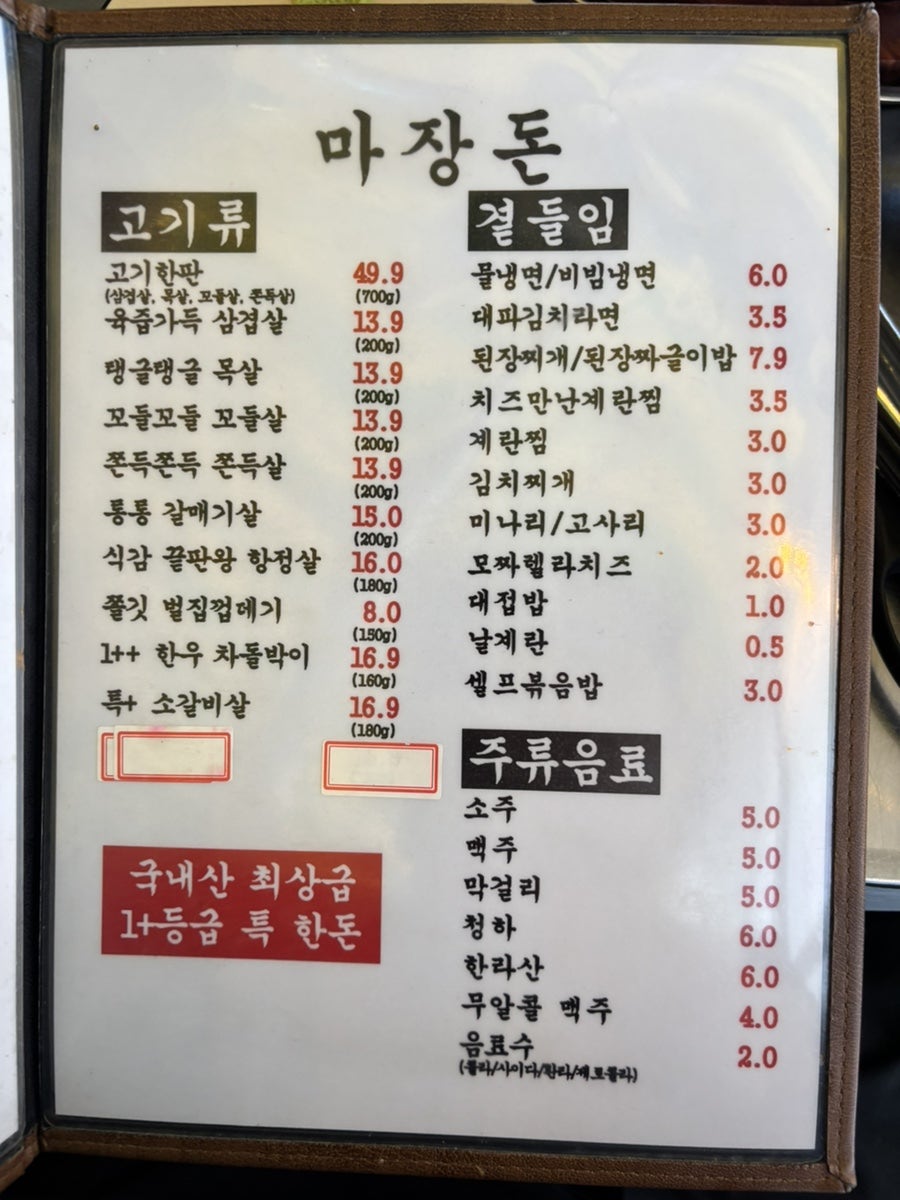 마장돈
고기류
고기한판 49.9
(삼겹살, 목살, 꼬들살, 쫀득살) (700g)
육즙가득 삼겹살 13.9
(200g)
탱글탱글 목살 13.9
(200g)
꼬들꼬들 꼬들살 13.9
(200g)
쫀득쫀득 쫀득살 13.9
(200g)
통통 갈매기살 15.0
(200g)
식감 끝판왕 항정살 16.0
(180g)
쫄깃 벌집껍데기 8.0
(150g)
1++ 한우 차돌박이 16.9
(160g)
특+ 소갈비살 16.9
(180g)
국내산 최상급
1+등급 특 한돈
곁들임
물냉면/비빔냉면 6.0
대파김치라면 3.5
된장찌개/된장짜글이밥 7.9
치즈만난계란찜 3.5
계란찜 3.0
김치찌개 3.0
미나리/고사리 3.0
모짜렐라치즈 2.0
대접밥 1.0
날계란 0.5
셀프볶음밥 3.0
주류음료
소주 5.0
맥주 5.0
막걸리 5.0
청하 6.0
한라산 6.0
무알콜 맥주 4.0
음료수 2.0
(콜라/사이다/환타/제로콜라)